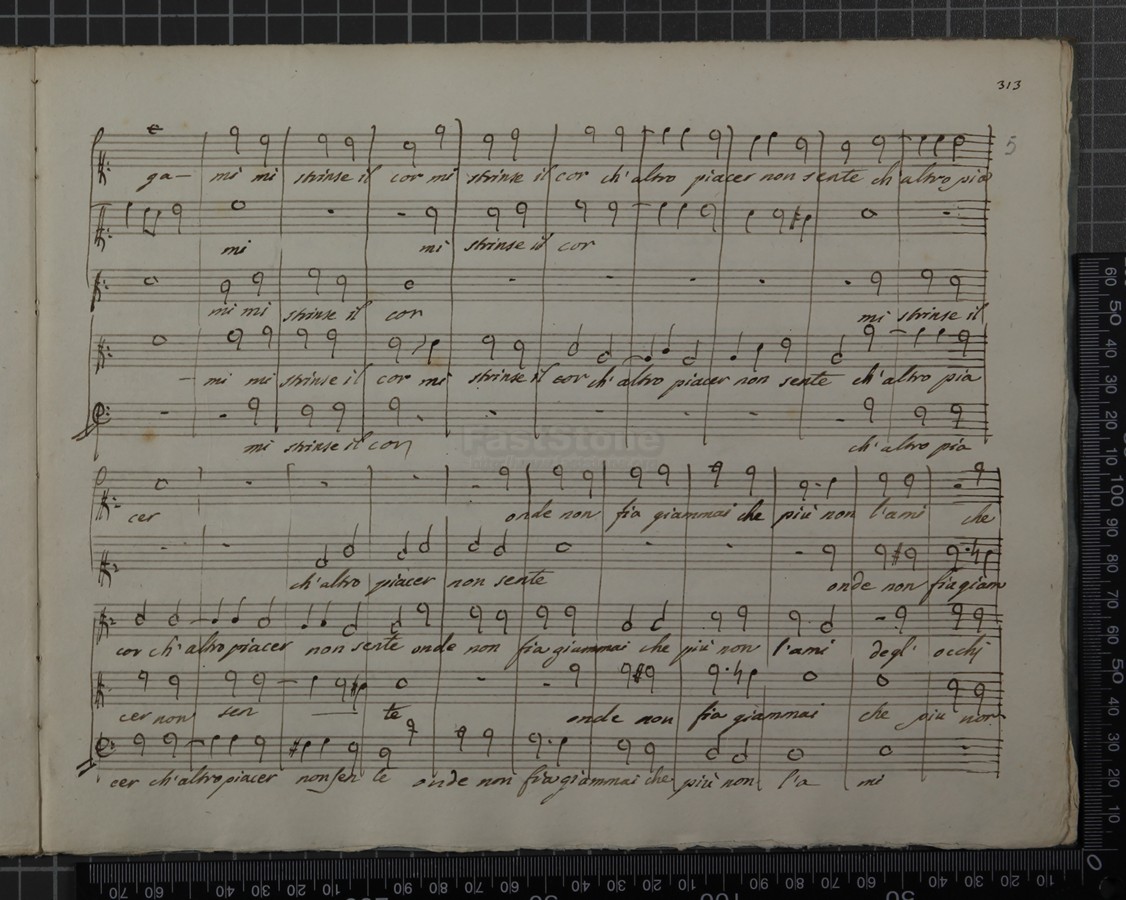 313
5
ga— mi mi strinse il cor mi strinse il cor ch'altro piacer non sente ch'altro pia
mi mi strinse il cor
mi mi strinse il cor mi strinse il
— mi mi strinse il cor mi strinse il cor ch'altro piacer non sente ch'altro pia
mi strinse il cor ch'altro pia
FastStone
cer onde non fia giammai che più non l'ami che
ch'altro piacer non sente onde non fia giam
cor ch'altro piacer non sente onde non fia giammai che più non l'ami degl' occhi
cer non sen — te onde non fia giammai che piu non
cer ch'altro piacer non sen te onde non fia giammai che più non l'a mi
60 50 40 30 20 10 100 90 80 70 60 50 40 30 20 10 0
70 60 40 30 20 10 90 80 70 60 40 30 20 10 90 80 70 60 40 30 20 10